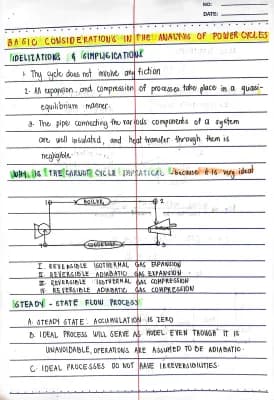 NO:
DATE:
BASIC CONSIDERATIONS IN THE ANALYSIS OF POWER CYCLES
IDELIZATIONS & SIMPLIGICATIONS
1. Thy cycle does not involve any fiction
2. All expansion and compression of processes takes place in a quasi-
equilibrium manner.
3. The pipes connecting the various components of a system
are well insulated, and heat transfer through them is
negligable.
WHY IS THE CARNOT CYCLE IMPRATICAL? because it is very ideal
BOILER
2
CONDENSER
3
I. REVERSIBLE ISOTHERMAL GAS EXPANSION
II. REVERSIBLE ADIABATIC GAS EXPANSION
III. REVERSIBLE ISOTHERMAL GAS COMPRESSION
IV. REVERSIBLE ADIABATIC GAS COMPRESSION
STEADY-STATE FLOW PROCESS
A. STEADY STATE: ACCUMULATION IS ZERO
B. IDEAL PROCESS WILL SERVE AS MODEL. EVEN THOUGH IT IS
UNAVOIDABLE, OPERATIONS ARE ASSUMED TO BE ADIABATIC.
C. IDEAL PROCESSES DO NOT HAVE IRREVERSIBILITIES.